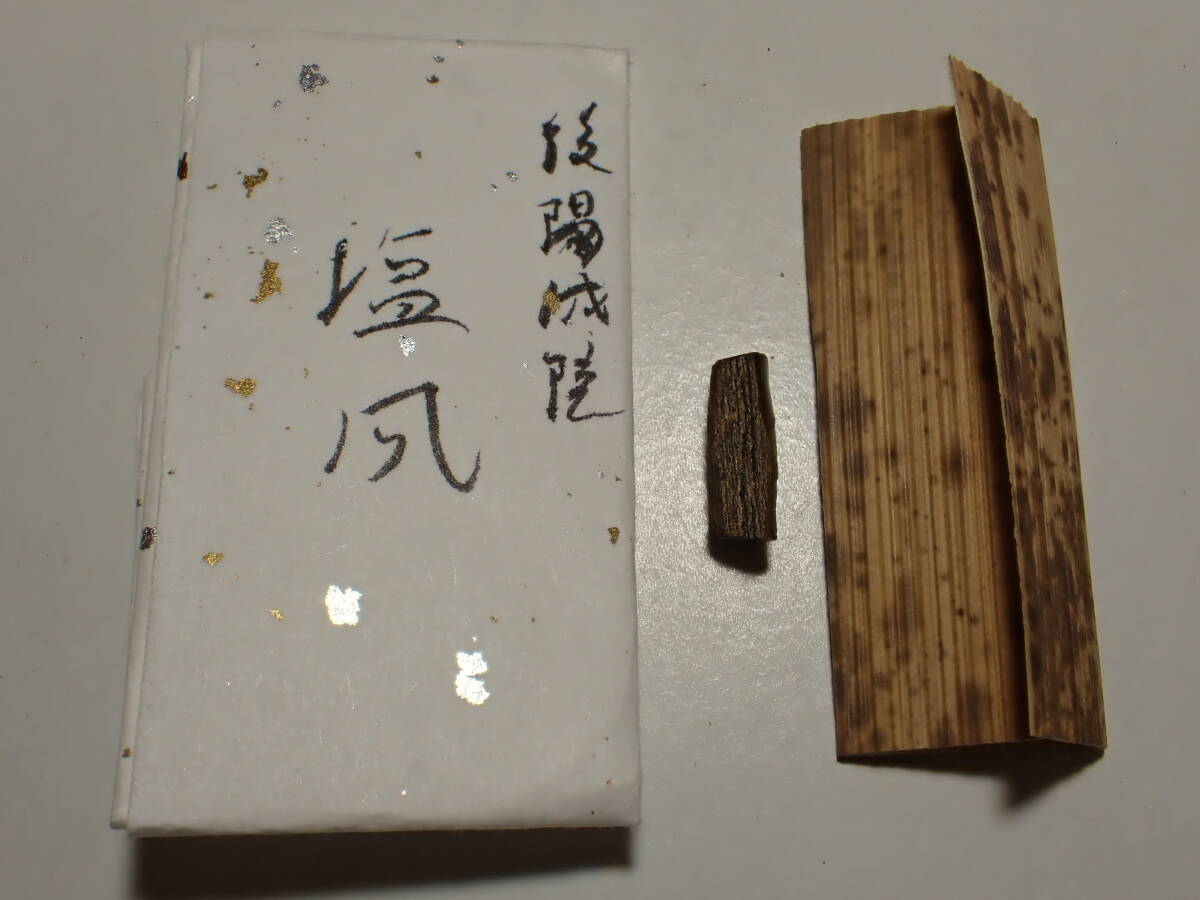 後陽成院
塩風